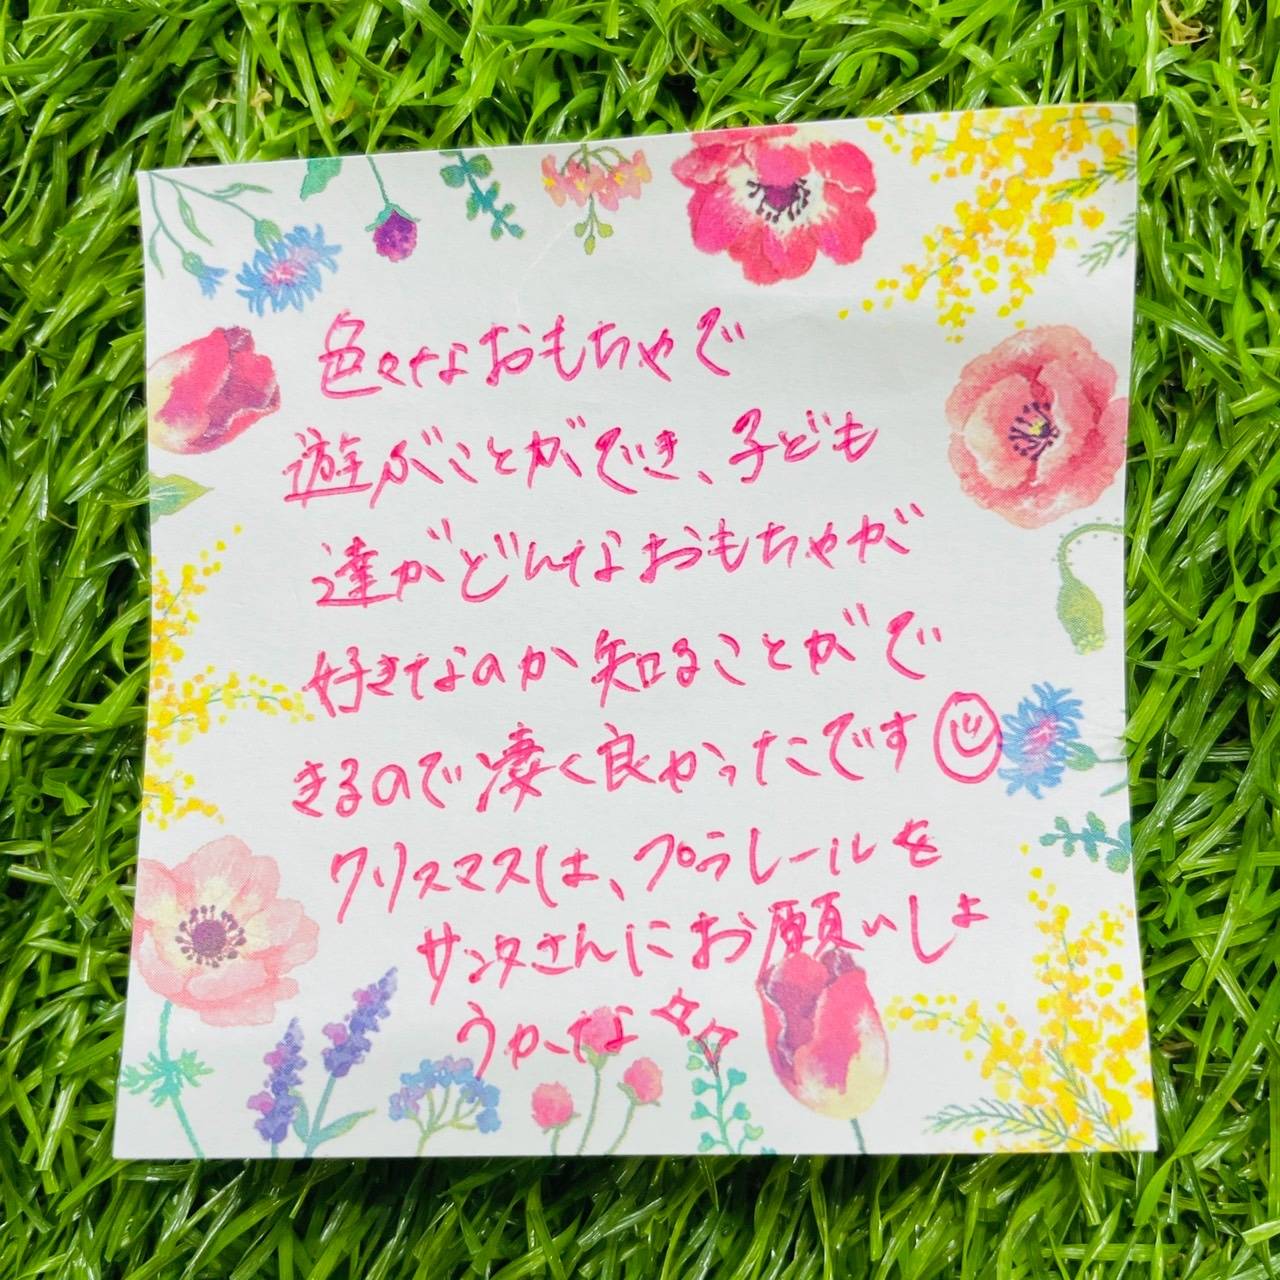 色々なおもちゃで
遊ぶことができ、子ども
達がどんなおもちゃが
好きなのか知ることがで
きるので凄く良かったです
クリスマスは、プラレールを
サンタさんにお願いしょ
うかな